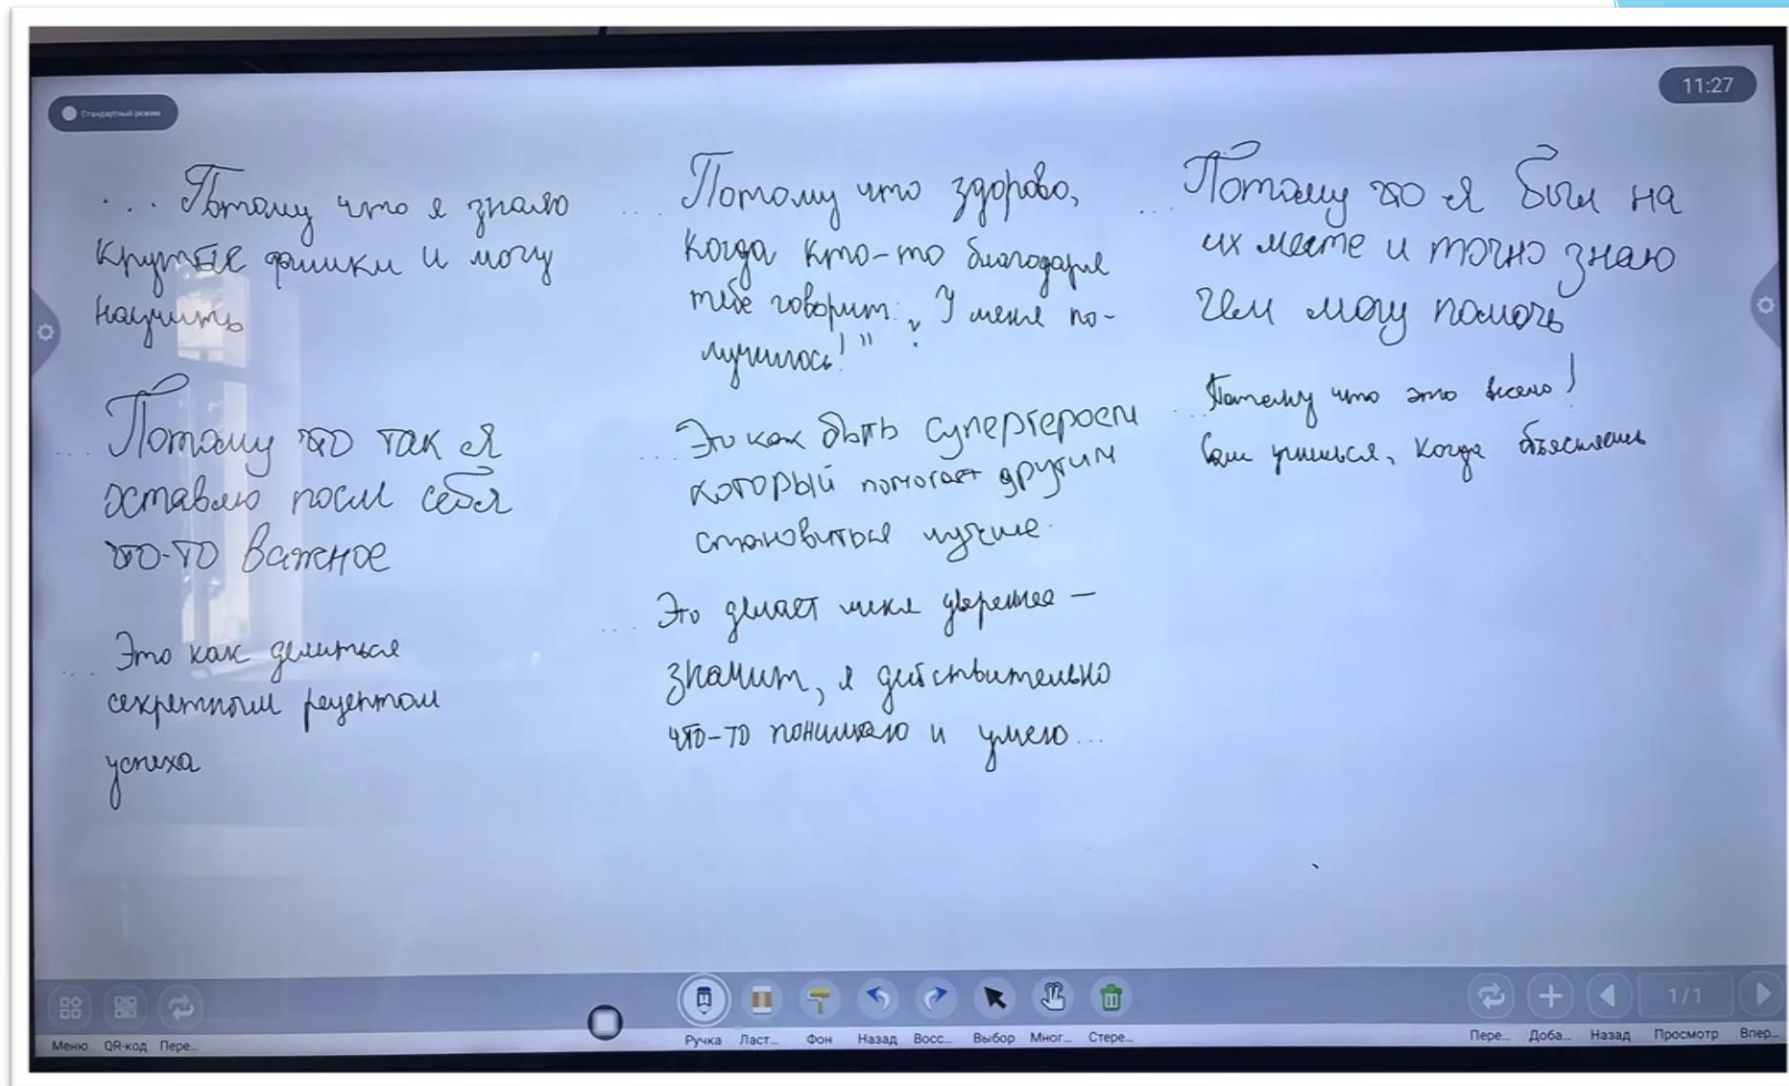 Стандартный режим
11:27
... Потому что я знаю
крутые фишки и могу
научить
... Потому что так я
оставлю после себя
что-то важное
... Это как делиться
секретным рецептом
успеха
... Потому что здорово,
когда кто-то благодаря
тебе говорит: „У меня по-
лучилось!"
... Это как быть супергероем
который помогает другим
становиться лучше.
... Это делает меня увереннее –
значит, я действительно
что-то понимаю и умею...
... Потому что я был на
их месте и точно знаю
чем могу помочь
... Потому что это весело!
Сам учишься, когда объясняешь
Меню QR-код Пере... Ручка Ласт... Фон Назад Восс... Выбор Мног... Стере... Пере... Доба... Назад 1/1 Просмотр Впер...